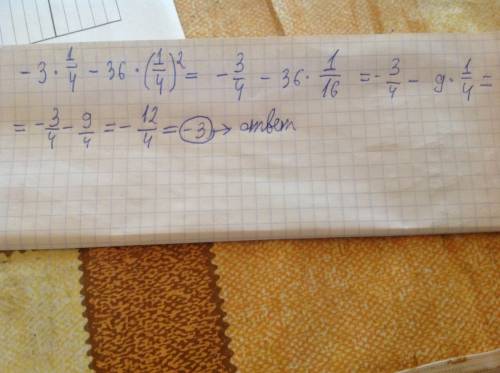 -3 · 1/4 - 36 · (1/4)² = - 3/4 - 36 · 1/16 = - 3/4 - 9 · 1/4 =
= - 3/4 - 9/4 = - 12/4 = -3 → ответ